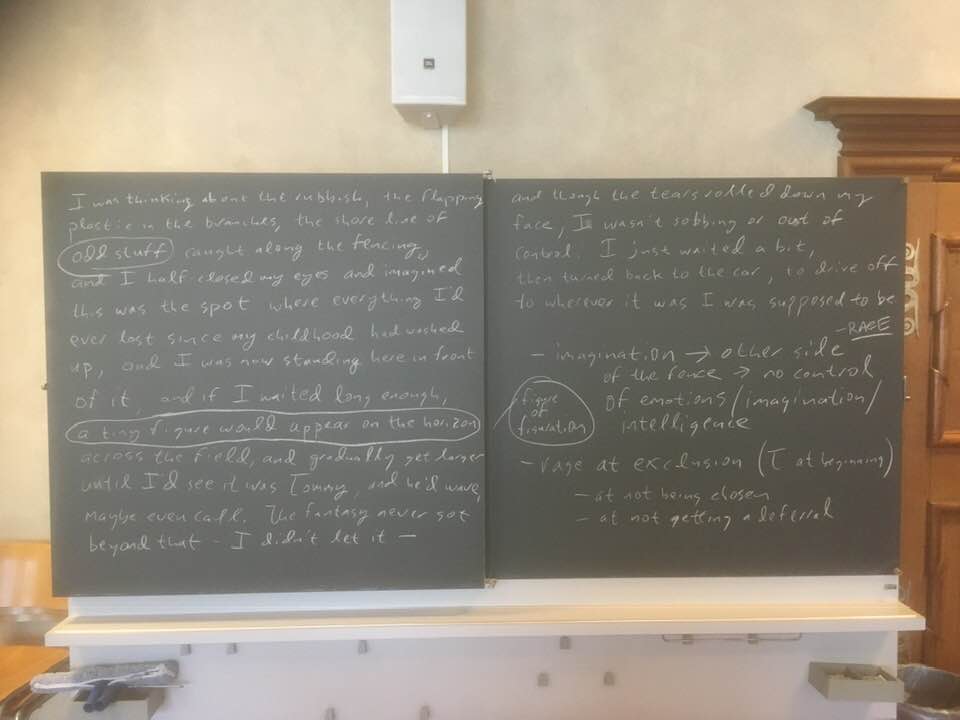 I was thinking about the rubbish, the flapping
plastic in the branches, the shore line of
odd stuff caught along the fencing,
and I half-closed my eyes and imagined
this was the spot where everything I'd
ever lost since my childhood had washed
up, and I was now standing here in front
of it, and if I waited long enough,
a tiny figure would appear on the horizon
across the field, and gradually get larger
until I'd see it was Tommy, and he'd wave,
maybe even call. The fantasy never got
beyond that - I didn't let it —
and though the tears rolled down my
face, I wasn't sobbing or out of
control. I just waited a bit,
then turned back to the car, to drive off
to wherever it was I was supposed to be
- RAGE
- imagination → other side
of the fence → no control
of emotions/imagination/
intelligence
figure
of
figuration
- rage at exclusion (T at beginning)
- at not being chosen
- at not getting a deferral
JBL